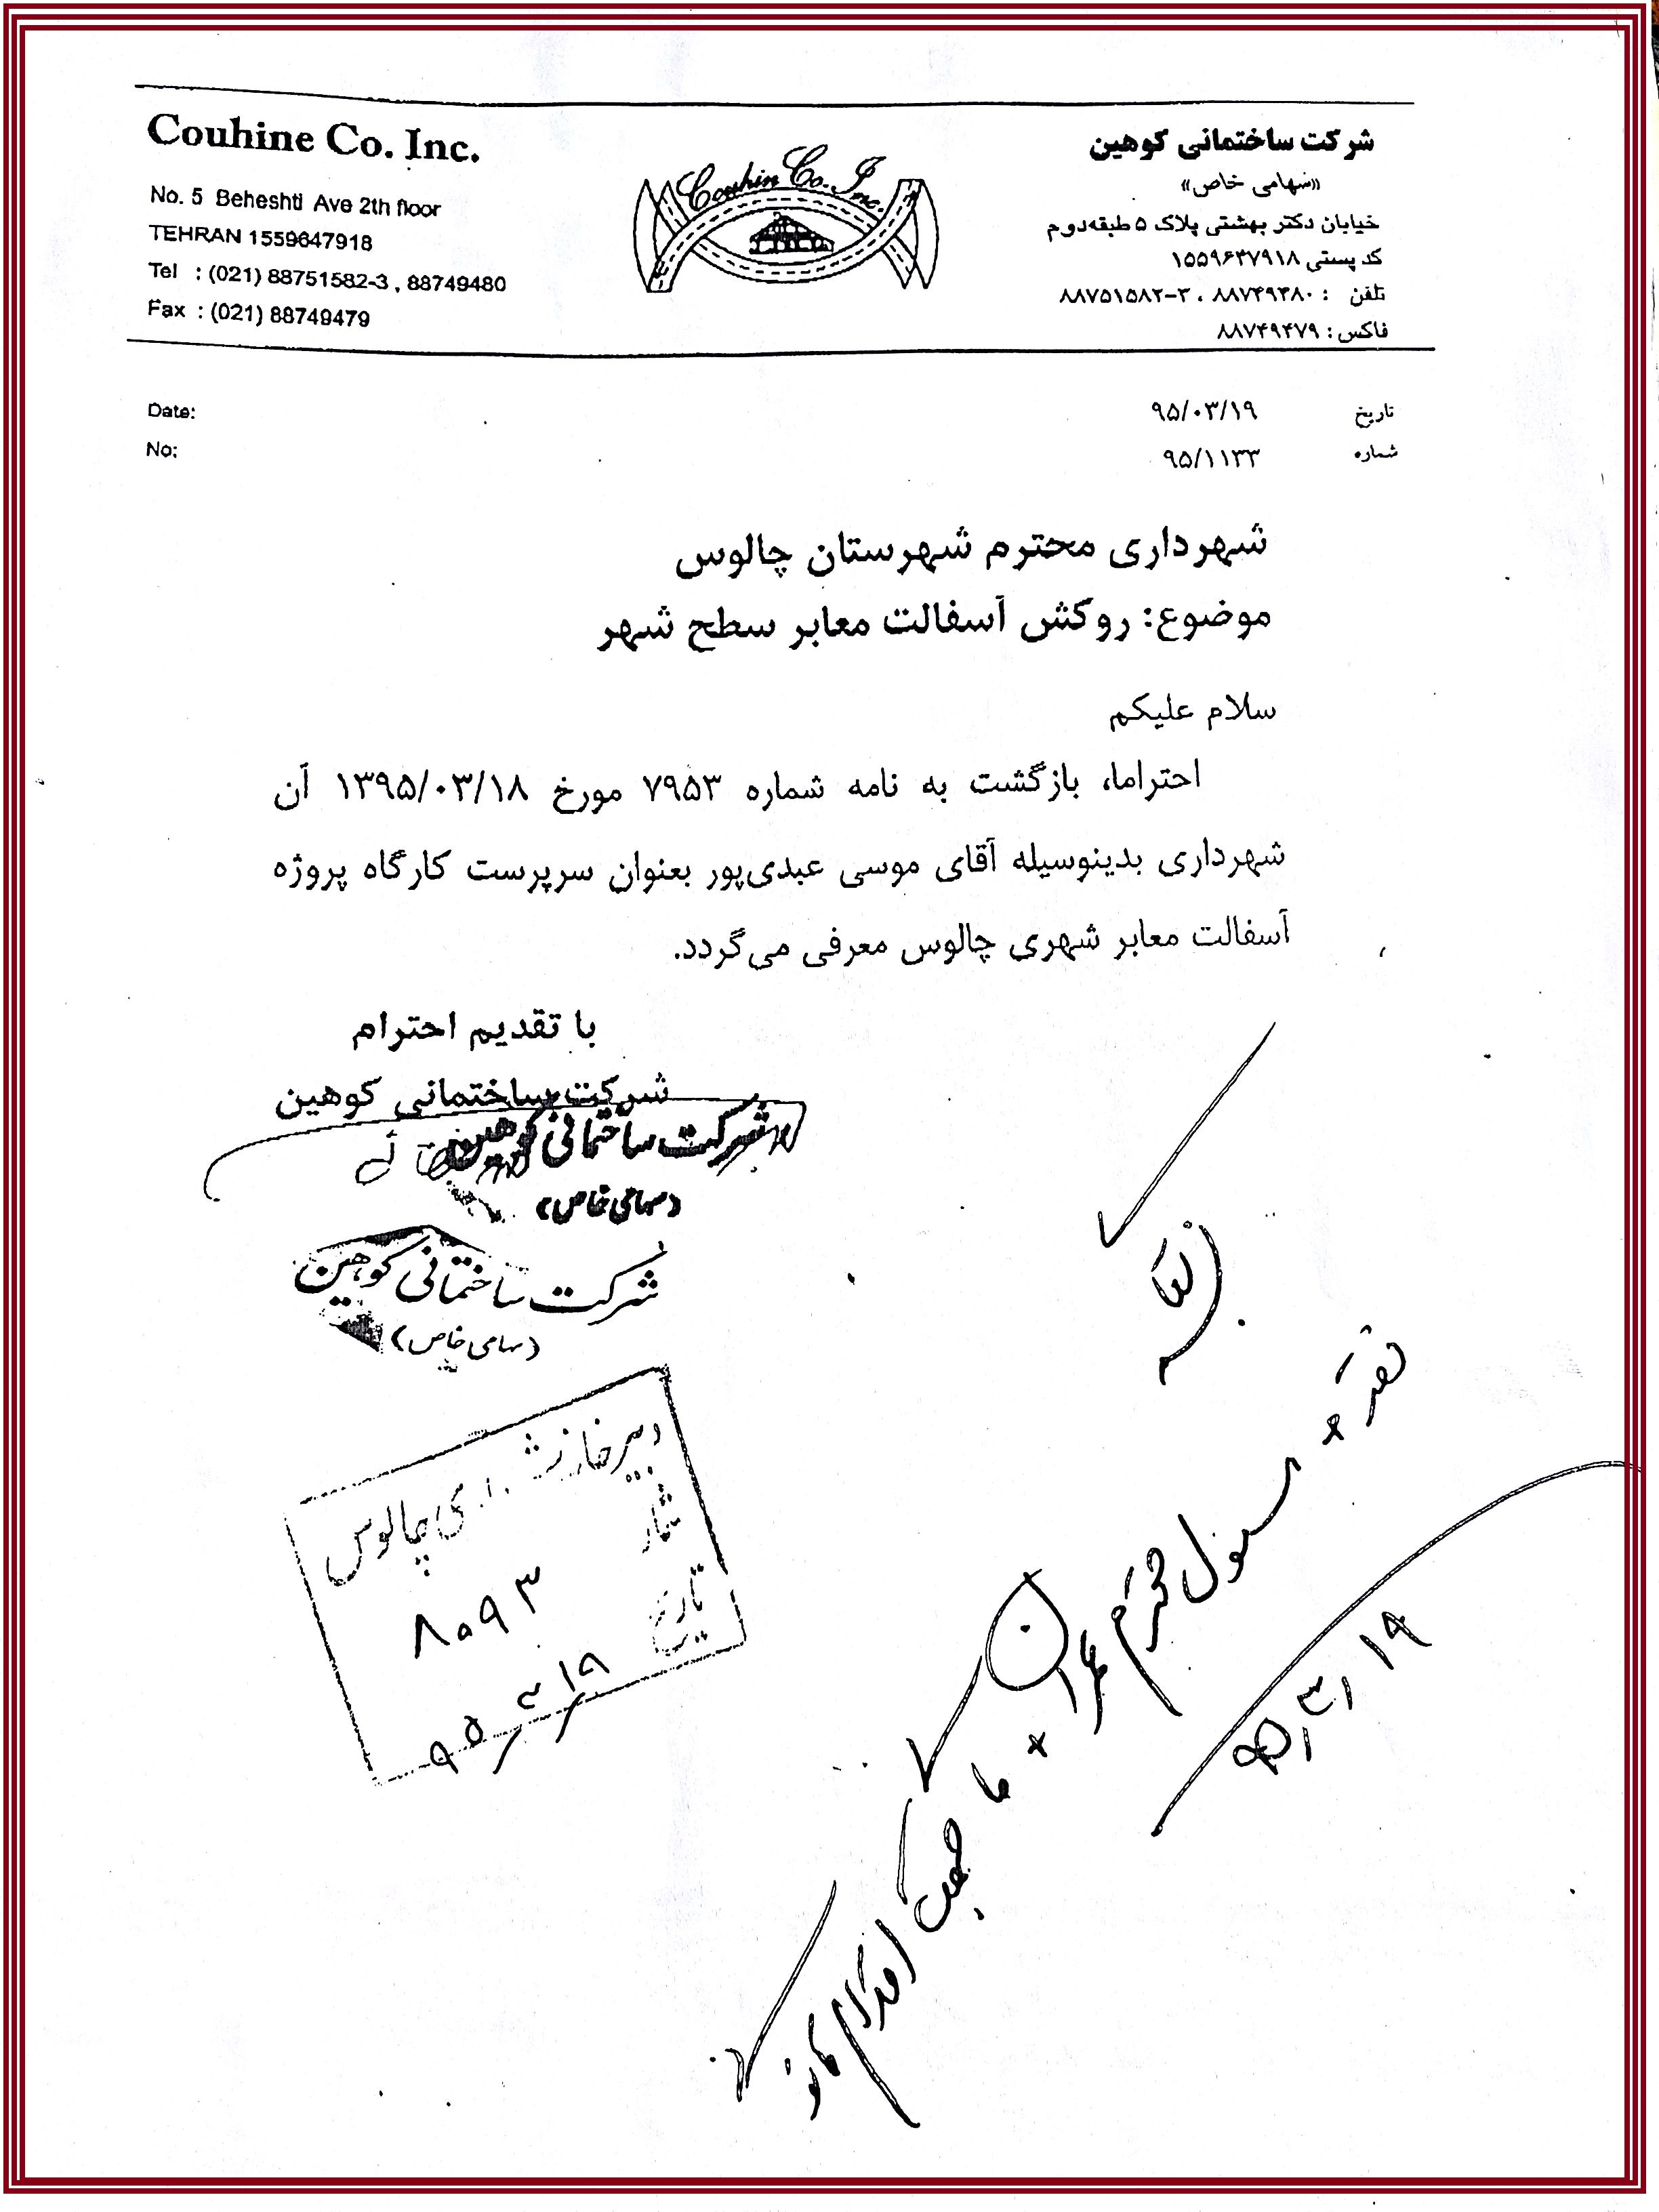 Couhine Co. Inc.
No. 5 Beheshti Ave 2th floor
TEHRAN 1559647918
Tel : (021) 88751582-3 , 88749480
Fax : (021) 88749479
Couhin Co. Inc.
شرکت ساختمانی کوهین
«سهامی خاص»
خیابان دکتر بهشتی پلاک ۵ طبقه دوم
کد پستی ۱۵۵۹۶۴۷۹۱۸
تلفن : ۸۸۷۴۹۴۸۰ ، ۳-۸۸۷۵۱۵۸۲
فاکس : ۸۸۷۴۹۴۷۹
Date:
No:
تاریخ ۹۵/۰۳/۱۹
شماره ۹۵/۱۱۳۳
شهرداری محترم شهرستان چالوس
موضوع: روکش آسفالت معابر سطح شهر
سلام علیکم
احتراما، بازگشت به نامه شماره ۷۹۵۳ مورخ ۱۳۹۵/۰۳/۱۸ آن
شهرداری بدینوسیله آقای موسی عبدی‌پور بعنوان سرپرست کارگاه پروژه
آسفالت معابر شهری چالوس معرفی می‌گردد.
با تقدیم احترام
شرکت ساختمانی کوهین
شرکت ساختمانی کوهین
(سهامی خاص)
شرکت ساختمانی کوهین
(سهامی خاص)
چالوس
۸۰۹۳
تاریخ
۹۵/۳/۱۹
مسئول محترم عمران
جهت اقدام
۹۵/۳/۱۹